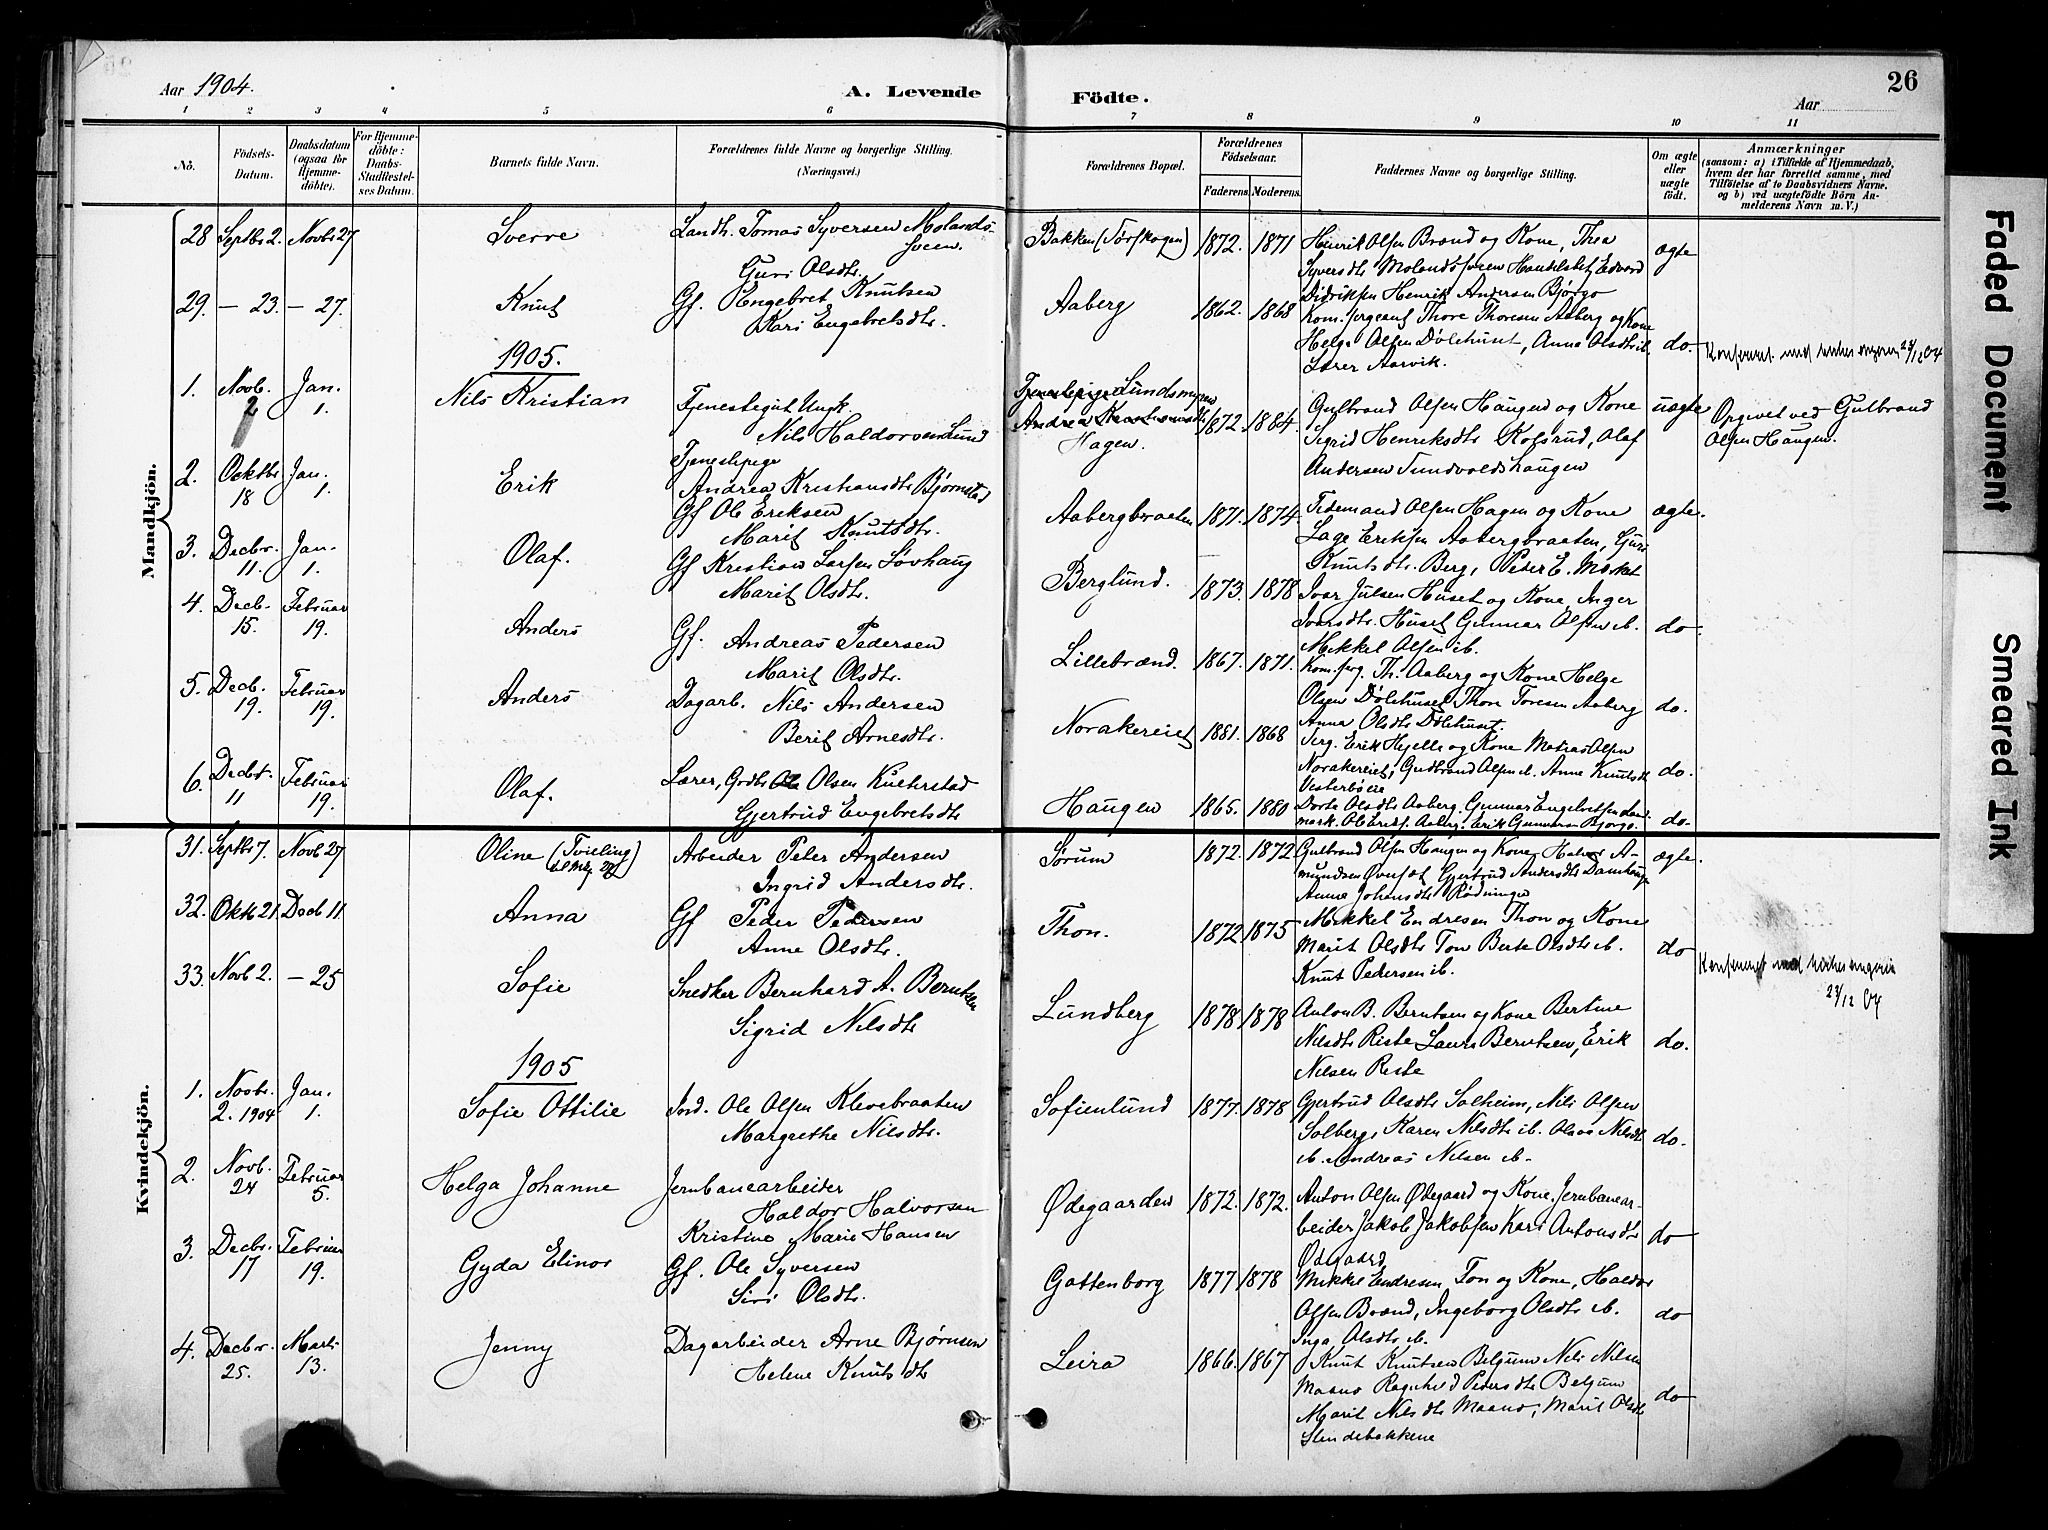 26
Aar 1904.
A. Levende Födte.
Aar
1 2 3 4 5 6 7 8 9 10 11
No.
Födsels-Datum.
Daabsdatum (ogsaa for Hjemme-döbte).
For Hjemme-döbte: Daabs-Stadfestel-ses Datum.
Barnets fulde Navn.
Forældrenes fulde Navne og borgerlige Stilling. (Næringsvei.)
Forældrenes Bopæl.
Forældrenes Födselsaar.
Faderens. Moderens.
Faddernes Navne og borgerlige Stilling.
Om ægte eller uægte födt.
Anmærkninger
(saasom: a) i Tilfælde af Hjemmedaab, hvem der har forrettet samme, med Tilföielse af to Daabsvidners Navne, og b) ved uægtefödte Börn An-melderens Navn m. V.)
Mandkjön.
28 Septbr 2. Novbr 27 Sverre Landh. Tomas Syversen Molands-
sveen.
Guri Olsdtr.
Bakken (Tørfskogen) 1872. 1871
Henrik Olsen Brænd og Kone, Thea
Syversdtr Molandssveen Handelsbet. Edvard
Didriksen Henrik Andersen Bjørgo
ægte
29. – 23. – 27. Knut Gf. Engebret Knutsen
Kari Engebretsdtr.
Aaberg 1862. 1868
Kom. sergeant Thore Thoresen Aaberg og Kone
Helge Olsen Dølehuset, Anna Olsdtr ib.
Lærer Aarvik.
do.
23/12 04
1905.
1. Novb. 2 Jan. 1. Nils Kristian Tjenestegut Ungk.
Nils Haldorsen Lund
Tjenestepige
Andrea Kristiansdtr Bjørnstad
Tjenestepige Lundsmyren
Andrea
Hagen.
1872. 1884.
Gulbrand Olsen Haugen og Kone
Sigrid Henriksdtr Kolsrud, Olaf
Andersen Sundvoldshaugen
uægte
Opgivet ved Gulbrand
Olsen Haugen.
2. Ocktbr 18 Jan. 1. Erik Gf Ole Eriksen
Marit Knutsdtr.
Aabergbraaten 1871. 1874.
Tidemand Olsen Hagen og Kone
Lage Eriksen Aabergbraaten, Guri
Knutsdtr. Berg, Peder E. Moket
ægte.
3. Decbr. 11. Jan. 1. Olaf. Gf Kristian Larsen Løvhaug
Marit Olsdtr.
Berglund. 1873. 1878
Ivar Julsen Huset og Kone Inger
Ivarsdtr. Huset Gunnar Olsen ib.
Mikkel Olsen ib.
do.
4. Decb. 15. Februar 19. Anders Gf. Andreas Pedersen
Marit Olsdtr.
Lillebrænd. 1867. 1871.
Kom. srg. Th. Aaberg og Kone Helge
Olsen Dølehuset Thor Toresen Aaberg
Anna Olsdtr Dølehuset.
do.
5. Decb. 19. Februar 19. Anders Dagarb. Nils Andersen
Berit Arnesdtr.
Norakereiet 1881. 1868
Serg. Erik Hjelle og Kone Matias Olsen
Norakereiet, Gudbrand Olsen ib. Anne Knutsdtr
Vesterbøeie
do.
6. Decbr. 11 Februar 19. Olaf. Lærer, Grdbr. Ole Olsen
Gjertrud Engebretsdtr.
Haugen 1865. 1880
Dorte Olsdtr Aaberg. Gunnar Engebretsen Lan-
mark. Ole Eriks. Aaberg. Erik Gunnarsen Bjørgo.
do.
Kvindekjön.
31. Septbr 7. Novb 27 Oline (Tvilling
Arbeider Peter Andersen
Ingrid Andersdtr.
Sørum 1872. 1872
Gulbrand Olsen Haugen og Kone Halvor A-
mundsen Øverset Gjertrud Andersdtr
Anne Johansdtr Rødningen
ægte.
32. Oktb 21. Decb 11 Anna Gf Peder Pedersen
Anne Olsdtr.
Thon. 1872 1875
Mikkel Endresen Thon og Kone
Marit Olsdtr Ton Berte Olsdtr ib.
Knut Pedersen ib.
do
23/12 04
33. Novb 2. – 25 Sofie Snedker Bernhard A. Berntsen
Sigrid Nilsdtr
Lundberg 1878 1878
Anton B. Berntsen og Kone Bertine
Nilsdtr Riste Laura Berntsen, Erik
Nilsen Riste
do.
1905
1. Novbr. 2. 1904. Jan. 1. Sofie Ottilie Jord. Ole Olsen Klevebraaten
Margrethe Nilsdtr.
Sofienlund 1877. 1878
Gjertrud Olsdtr Solheim, Nils Olsen
Solberg, Karen Nilsdtr ib. Olava Nilsdtr
ib. Andreas Nilsen ib.
do.
2. Novb. 24 Februar 5. Helga Johanne Jernbanearbeider
Haldor Halvorsen
Kristine Marie Hansen
Ødegaarden 1872. 1872.
Anton Olsen Ødegaard og Kone, Jernbanear-
beider Jakob Jakobsen Kari Antonsdtr
Ødegaard
do
3. Decbr. 17 Februar 19. Gyda Elinor Gf. Ole Syversen
Siri Olsdtr.
Gottenborg 1877 1878
Mikkel Endresen Ton og Kone, Haldor
Olsen Brænd, Ingeborg Olsdtr ib.
Inga Olsdtr ib.
do
4. Decbr. 25. Marts 13. Jenny Dagarbeider Arne Bjørnsen
Helene Knutsdtr
Leira 1866. 1867
Knut Knutsen Belgum Nils Nilsen
Maano Ragnhild Pedersdtr Belgum
Marit Nilsdtr Maano, Marit Olsdtr
Slindebakkene
do
Faded Document
Smeared Ink